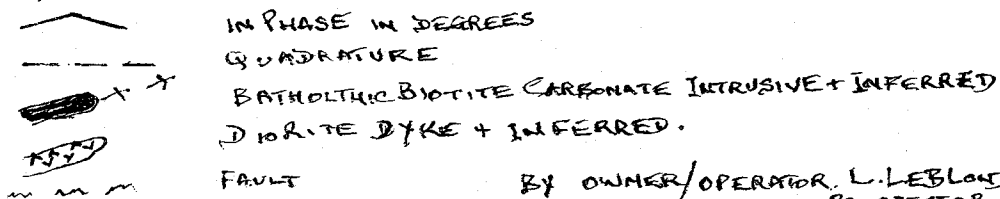 IN PHASE IN DEGREES
QUADRATURE
BATHOLTHIC BIOTITE CARBONATE INTRUSIVE + INFERRED
DIORITE DYKE + INFERRED.
FAULT
BY OWNER/OPERATOR. L. LEBLOND